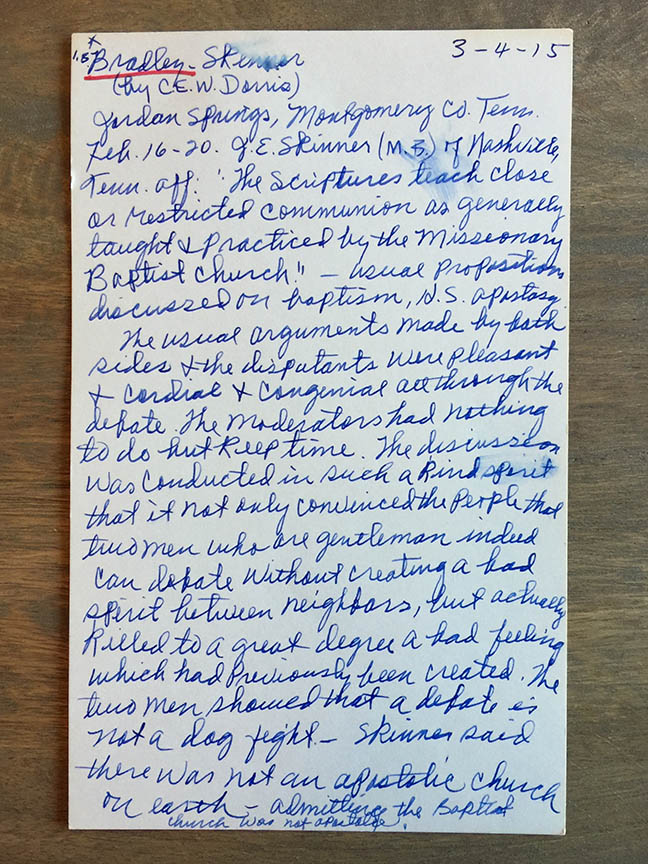 Bradley - Skinner 3-4-15
(by C.E.W. Dorris)
Jordan Springs, Montgomery Co. Tenn.
Feb. 16-20. J.E. Skinner (M.B.) of Nashville,
Tenn. aff. "The Scriptures teach close
or restricted communion as generally
taught & practiced by the Missionary
Baptist Church." - usual propositions
discussed on baptism, H.S. apostasy.
The usual arguments made by both
sides & the disputants were pleasant
& cordial & congenial all through the
debate. The moderators had nothing
to do but keep time. The discussion
was conducted in such a kind spirit
that it not only convinced the people that
two men who are gentleman indeed
can debate without creating a bad
spirit between neighbors, but actually
killed to a great degree a bad feeling
which had previously been created. The
two men showed that a debate is
not a dog fight - Skinner said
there was not an apostolic church
on earth - admitting the Baptist
church was not apostolic.